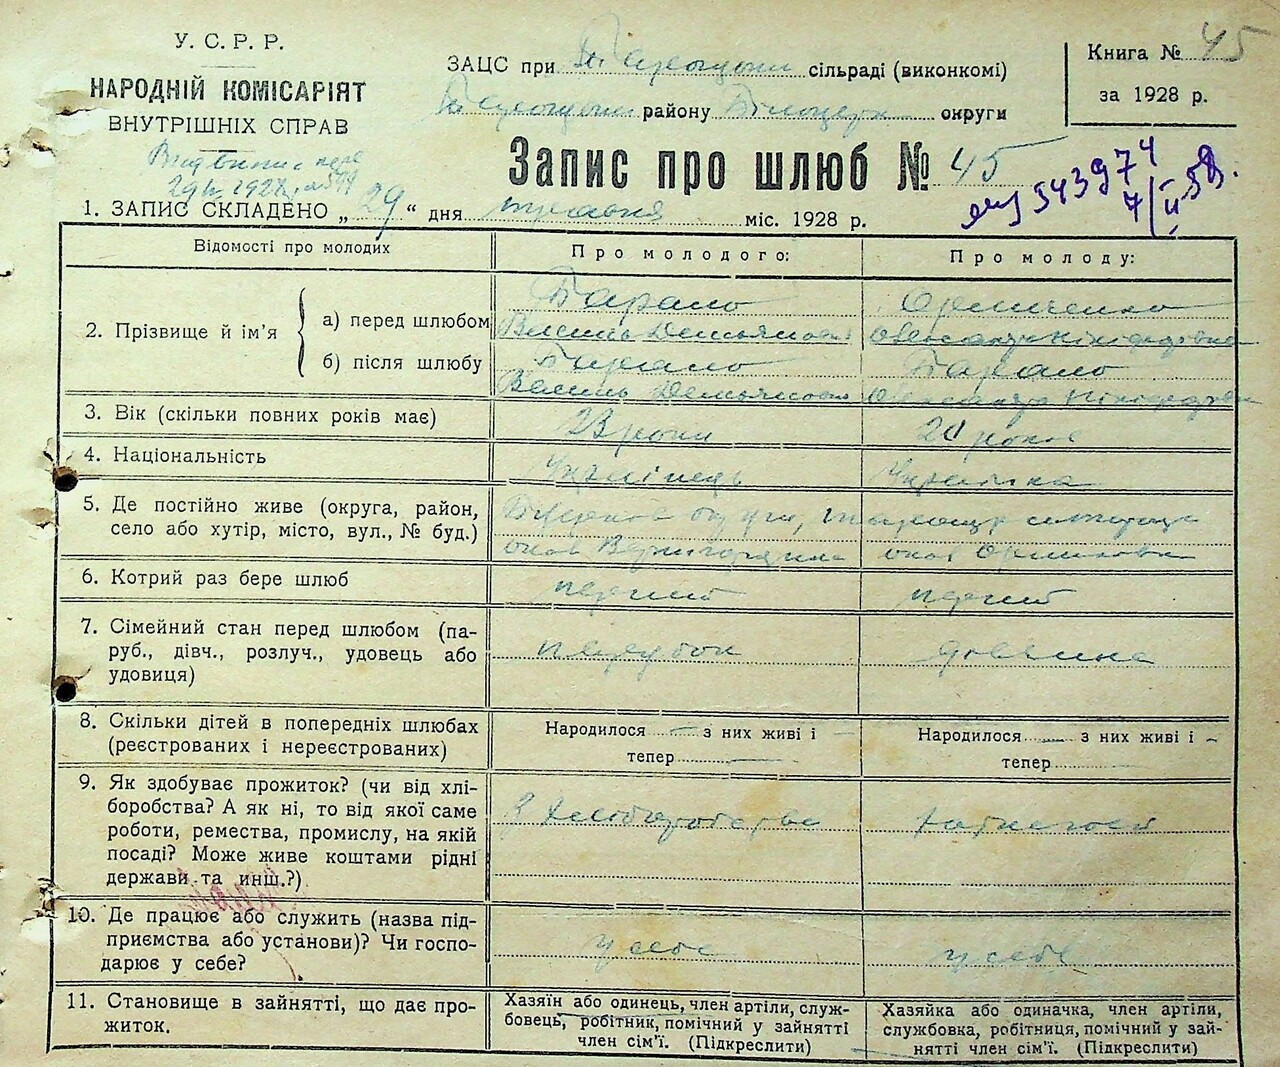 У. С. Р. Р.
НАРОДНІЙ КОМІСАРІЯТ
ВНУТРІШНІХ СПРАВ
ЗАЦС при сільраді (виконкомі)
району округи
Книга № 45
за 1928 р.
Запис про шлюб № 45
543974
1. ЗАПИС СКЛАДЕНО „ 29 “ дня травня міс. 1928 р.
Відомості про молодих
Про молодого:
Про молоду:
2. Прізвище й ім’я
а) перед шлюбом
б) після шлюбу
Василь Демьянович
Олександра
Василь Демьянович
Олександра
3. Вік (скільки повних років має)
23 роки
20 років
4. Національність
Українець
Українка
5. Де постійно живе (округа, район,
село або хутір, місто, вул., № буд.)
6. Котрий раз бере шлюб
перший
перший
7. Сімейний стан перед шлюбом (па-
руб., дівч., розлуч., удовець або
удовиця)
парубок
дівчина
8. Скільки дітей в попередніх шлюбах
(реєстрованих і нереєстрованих)
Народилося з них живі і
тепер
Народилося з них живі і
тепер
9. Як здобуває прожиток? (чи від хлі-
боробства? А як ні, то від якої саме
роботи, ремества, промислу, на якій
посаді? Може живе коштами рідні
держави та инш.?)
з хліборобства
10. Де працює або служить (назва під-
приємства або установи)? Чи госпо-
дарює у себе?
у себе
у себе
11. Становище в зайнятті, що дає про-
житок.
Хазяїн або одинець, член артіли, служ-
бовець, робітник, помічний у зайнятті
член сім’ї. (Підкреслити)
Хазяйка або одиначка, член артіли,
службовка, робітниця, помічний у зай-
нятті член сім’ї. (Підкреслити)